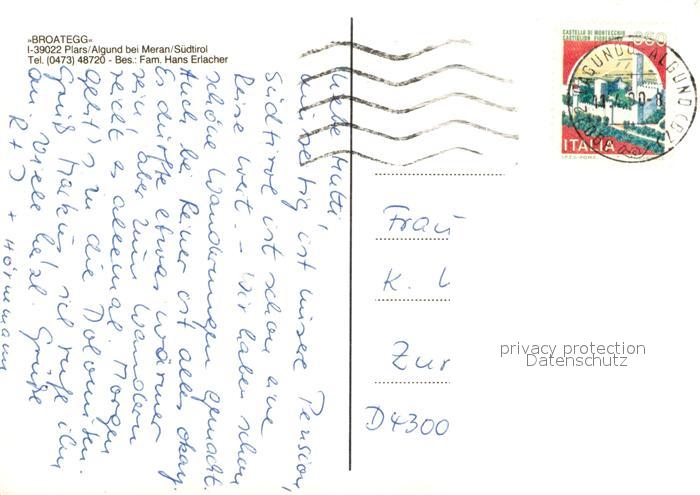 »BROATEGG«
I-39022 Plars/Algund bei Meran/Südtirol
Tel. (0473) 48720 - Bes.: Fam. Hans Erlacher
Liebe Mutti,
ist unsere Pension,
Südtirol ist schon eine
Reise wert. - Wir haben schon
schöne Wanderungen gemacht.
Auch bei Reiner ist alles okay.
Es dürfte etwas wärmer
sein aber zum Wandern
reicht es allemal. Morgen
geht's in die Dolomiten.
Grüß Markus, ich rufe ihn
an. Viele herzl. Grüße
R + J + Hörnmann
CASTELLO DI MONTECCHIO
CASTIGLION FIORENTINO
ITALIA
LAGUNDO ALGUND (BZ)
Frau
K. L
Zur
D4300
privacy protection
Datenschutz